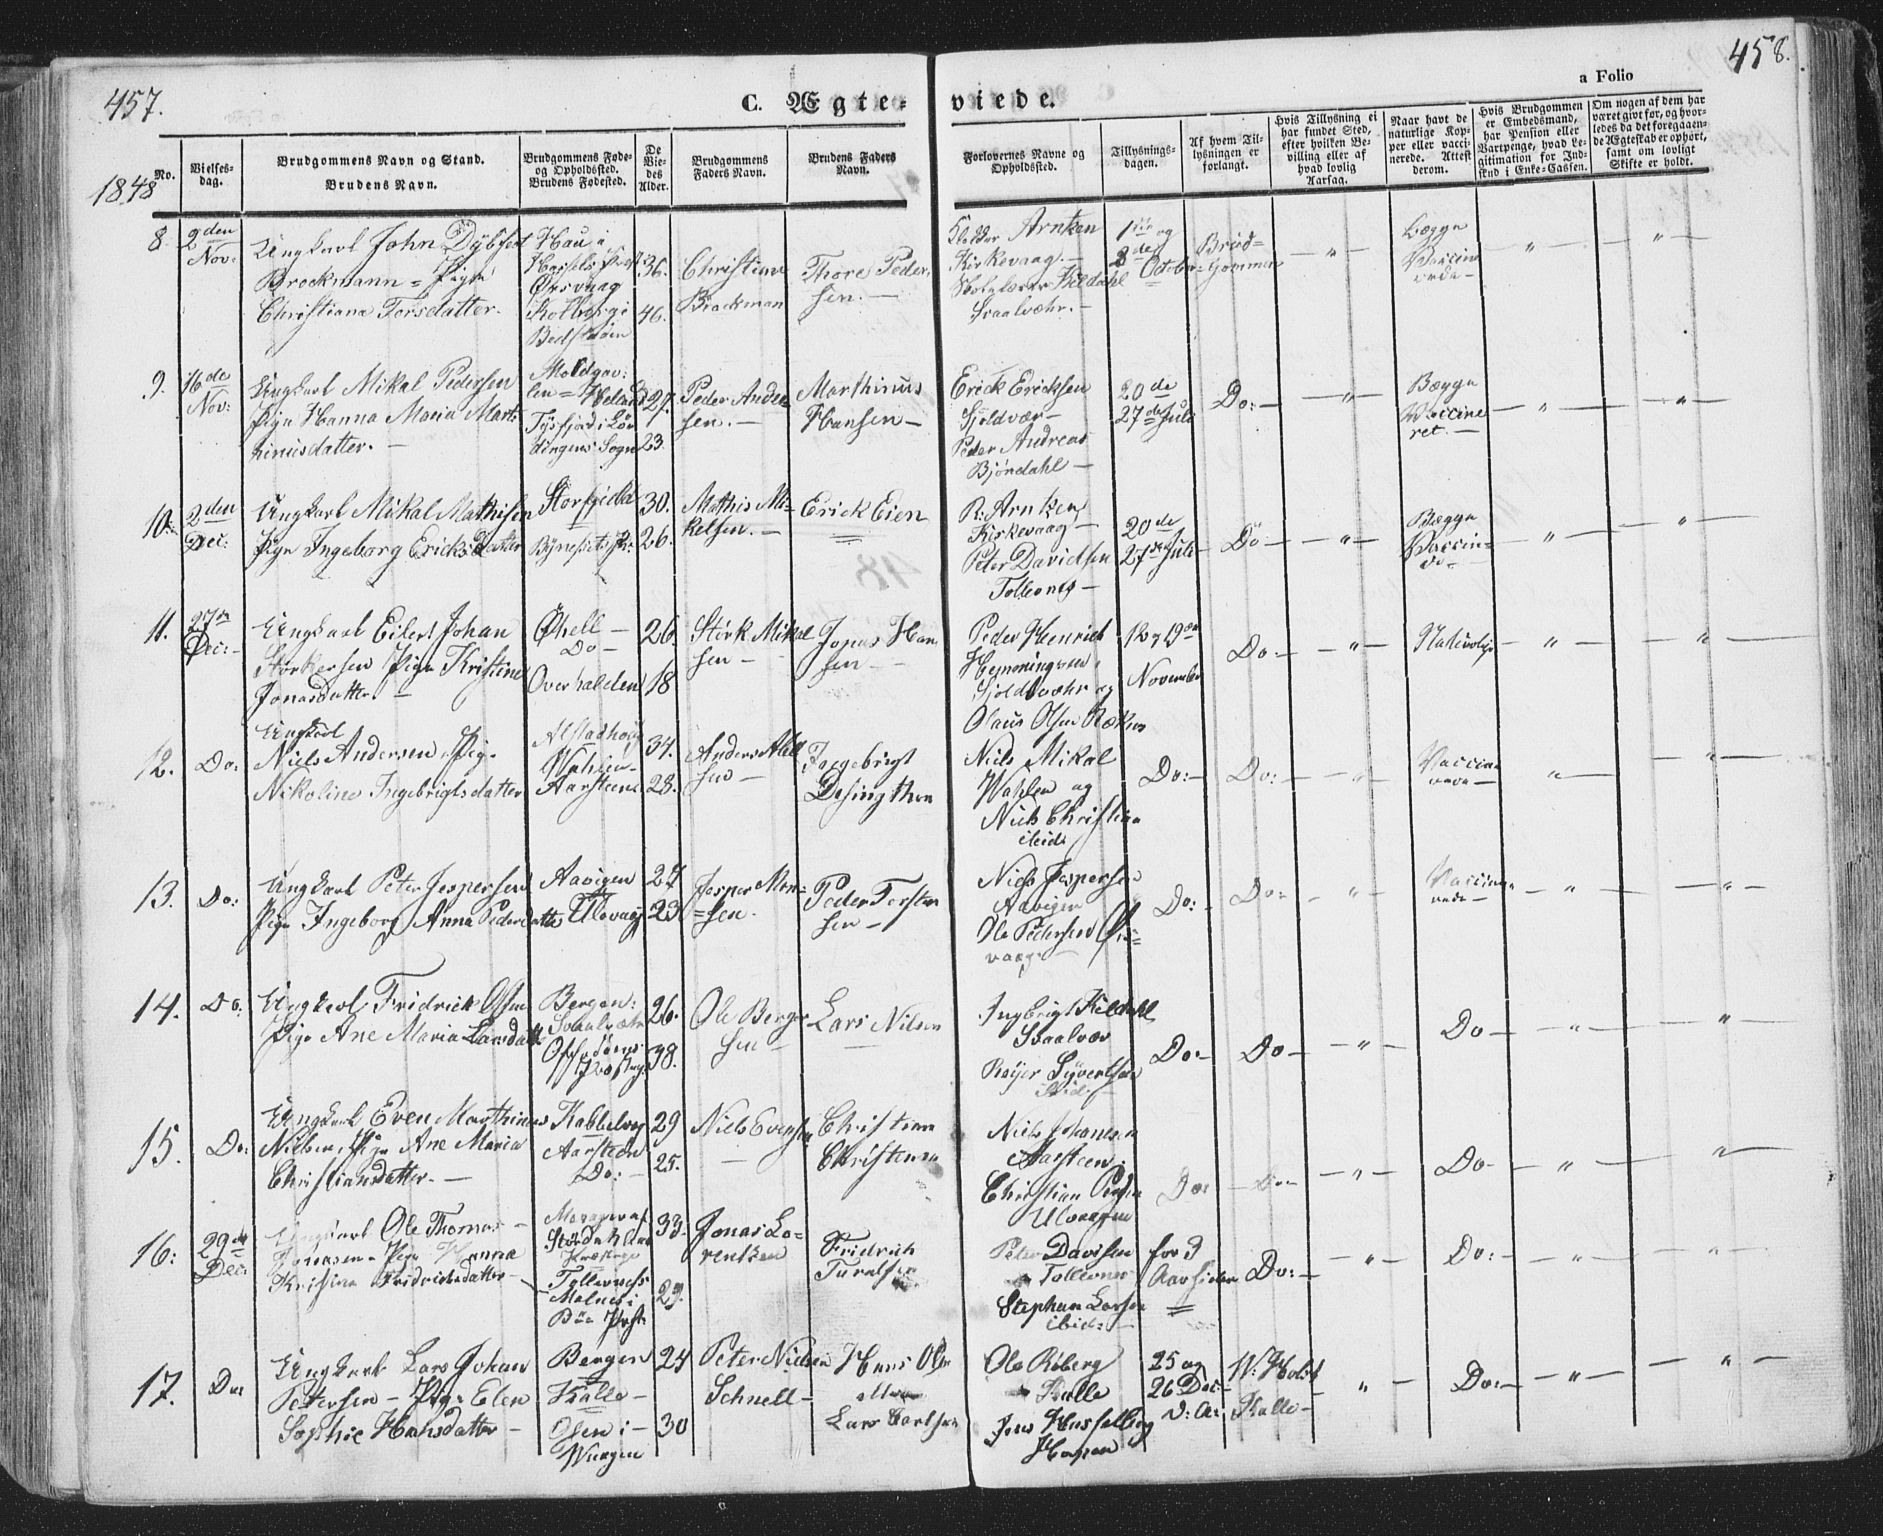 457.
458.
C. Ægte-
viede.
a Folio
1848
No.
Vielses-
dag.
Brudgommens Navn og Stand.
Brudens Navn.
Brudgommens Føde-
og Opholdssted.
Brudens Fødested.
De
Vie-
des
Alder.
Brudgommens
Faders Navn.
Brudens Faders
Navn.
Forlovernes Navne og
Opholdssted.
Tillysnings-
dagen.
Af hvem Til-
lysningen er
forlangt.
Hvis Tillysning ei
har fundet Sted,
efter hvilken Be-
villing eller af
hvad lovlig
Aarsag.
Naar havt de
naturlige Kop-
per eller vacci-
nerede. Attest
derom.
Hvis Brudgommen
er Embedsmand,
har Pension eller
Vartpenge, hvad Le-
gitimation for Ind-
skud i Enke-Cassen.
Om nogen af dem har
været givt før, og hvor-
ledes da det foregaaen-
de Ægteskab er ophørt,
samt om lovligt
Skifte er holdt.
8.
2den
Nov:
Ungkarl John Dybfest
Brockmann = Pige
Christiana Torsdatter.
Hau i
Ørsvaag
36.
46.
Christian
Brockman
Thore Peder
sen. —
Arnken
Kirkevaag. —
Kildahl
Svaalvæhr. —
1ste og
8de October
Brud=
Gommen
— " —
Begge
Vaccin
erede —
9.
16de
Nov:
Ungkarl Mikal Pedersen
Pige Hanna Maria Mart
hinusdatter. —
Tysfjord i Lø
dingens Sogn
27.
23.
Peder Ander
sen. —
Marthinus
Hansen —
Erick Ericksen
Sjoldvær —
Peder Andreas
Bjöndahl —
20de
27de Juli
Do: —
— " —
Begge
Vaccine
ret. —
10.
2den
Dec:
Ungkarl Mikal Mathisen
Pige Ingeborg Ericksdatter
Storfjeld
30.
26.
Mathis Mi-
kelsen. —
Erick Eien
R: Arnken
Kirkevaag —
Peter Davidsen
Tollevnes —
20de
27de Juli
Do —
— " —
Begge
Vaccin=
11.
27de
Dec: —
Ungkarl Eilert Johan
Storkersen Pige Kristine
Jonasdatter. —
Øhell —
Do —
Overhalden
26.
18
Störk Mikal
sen —
Jonas Han
sen —
Peder Henrich
Henningsen
Sjoldvæhr og
Olaus Olsen Røknes
12 og 19de
November
Do: —
— " —
Naturlige
12.
Do:
Ungkarl
Niels Andersen, Pige
Nikoline Ingebrigtsdatter
Alstadhoug
Wahlen —
Aarsteen
34.
28.
Anders Abel
sen —
Ingebrigt
Niels Mikal
Wahlen og
Niels Christian
ibid:
Do: —
Do: —
Vaccine
rede —
13.
Do:
Ungkarl Peter Jespersen
Pige Ingeborg Anna Pedersdatter
Aavigen
Ulvaag
27
23
Jesper Mon=
=sen.
Peder Torsten
sen —
Niels Jespersen
Aavigen
Ole Pedersen Øre=
vaag —
Do: —
Do: —
Vaccine
rede —
14.
Do:
Ungkarl Fridrich Olsen
Pige Ane Maria Larsdatt
Bergen:
Svaalvæhr
26.
38.
Ole Berger
sen —
Lars Nilsen
Ingbrigt Kildahl
Svaalvær
Røjer Syvertsen
ibid: —
Do: —
Do —
Do —
15.
Do:
Ungkarl Even Marthinus
Nielsen, Pige Ane Maria
Christiansdatter. —
Kabbelvog
Aarsteen
Do: —
29
25.
Niels Evensen
Christian
Christensen
Niels Johansen
Aarsteen.
Christian Peder
Ulvaagen
Do:
Do —
16:
29de
Dec:
Ungkarl Ole Thomas —
Jonassen — Pige Hanna
Kristina Fridrichsdatter —
Tollevness
Malnes i
Böe Præst:
33.
29.
Jonas Lo=
rentsen
Fridrich
Peter Davisen
Tollevnes
Stephan Larsen
ibid: —
for 3
Aar siden
Do: —
Do: —
17.
Do:
Ungkarl Lars Johan
Petersen — Pige Elen
Sophie Hansdatter —
Bergen
Kalle —
Olsen i —
Waagen
24
30
Peter Nielsen
Schnell —
Hans Olsen
eller
Lars Carlsen
Ole Röberg
Kalle
Jens Hasselberg
Hopen
25 og
26 Dec: —
v: A:
W: Holst
Kalle —
— " —
Do: —
— " —